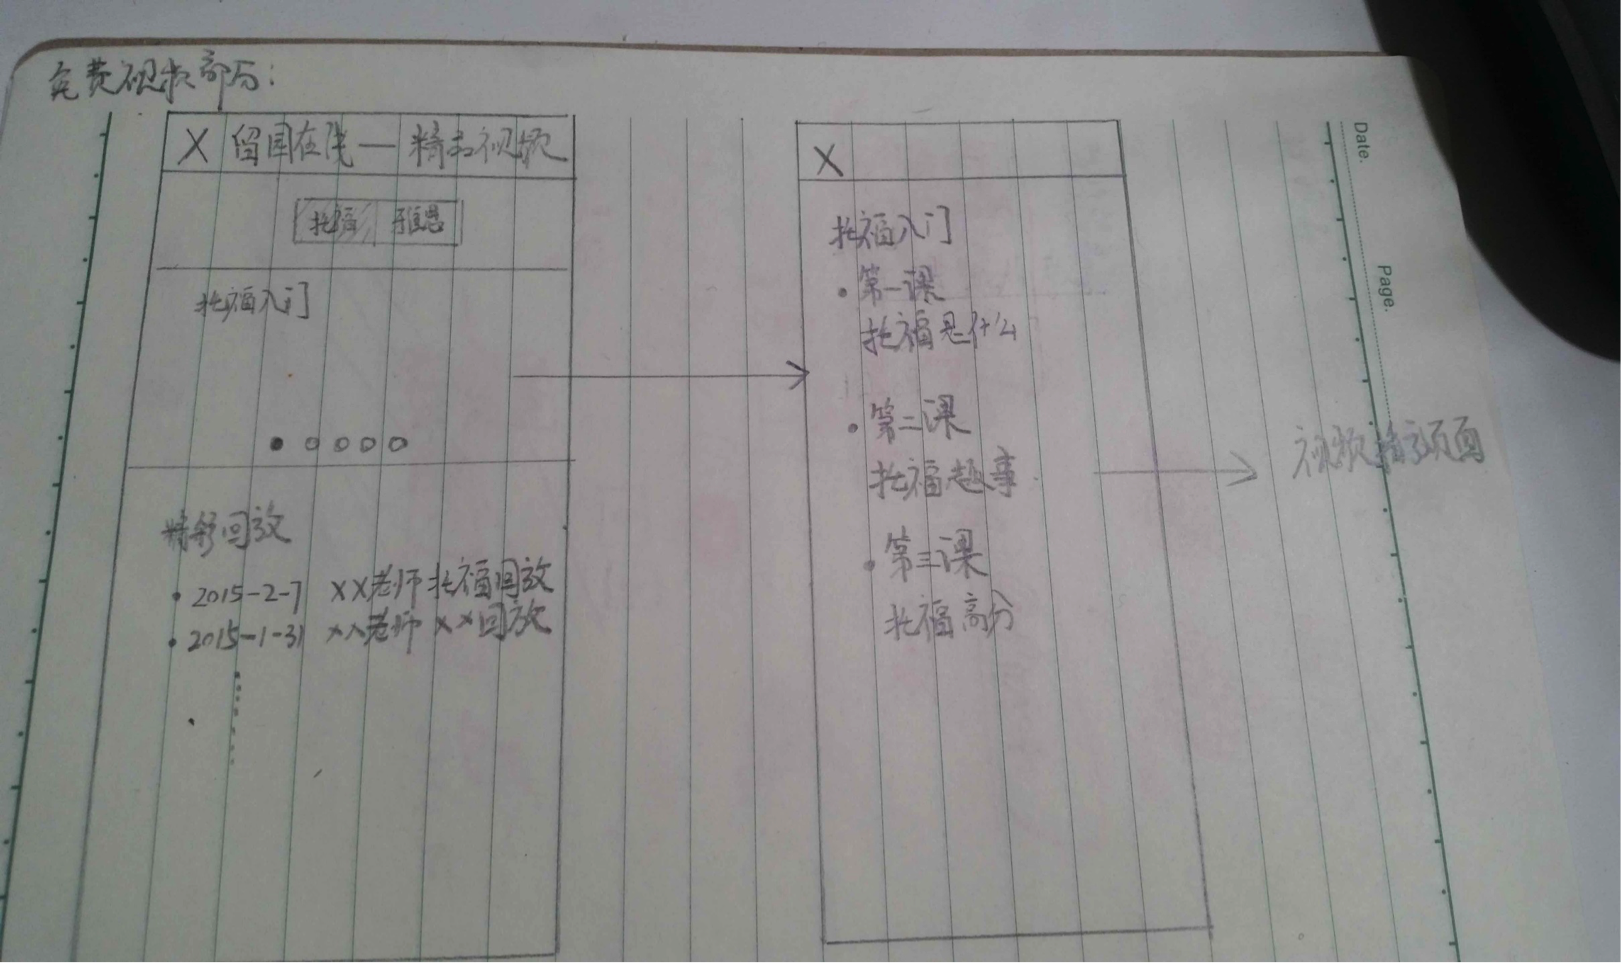 免费视频部分:
X 留国在线—精品视频
托福 雅思
托福入门
精彩回放
• 2015-2-7 XX老师托福回放
• 2015-1-31 XX老师 XX回放
X
托福入门
• 第一课
托福是什么
• 第二课
托福趣事
• 第三课
托福高分
视频播放页面
Date.
Page.